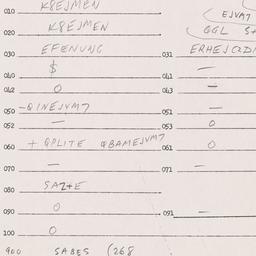 010 K8EJMEN
020 K8EJMEN
EJVM7
GGL
030 EFENUNG 031
040 $ 041 —
042 0 043 —
050 -QINEJVM7 051 —
052 — 053 0
060 + QPLITE QBAMEJVM7 061 0
070 — 071 —
080 SAZ+E
090 0 091 —
100 0
900 SABES (268